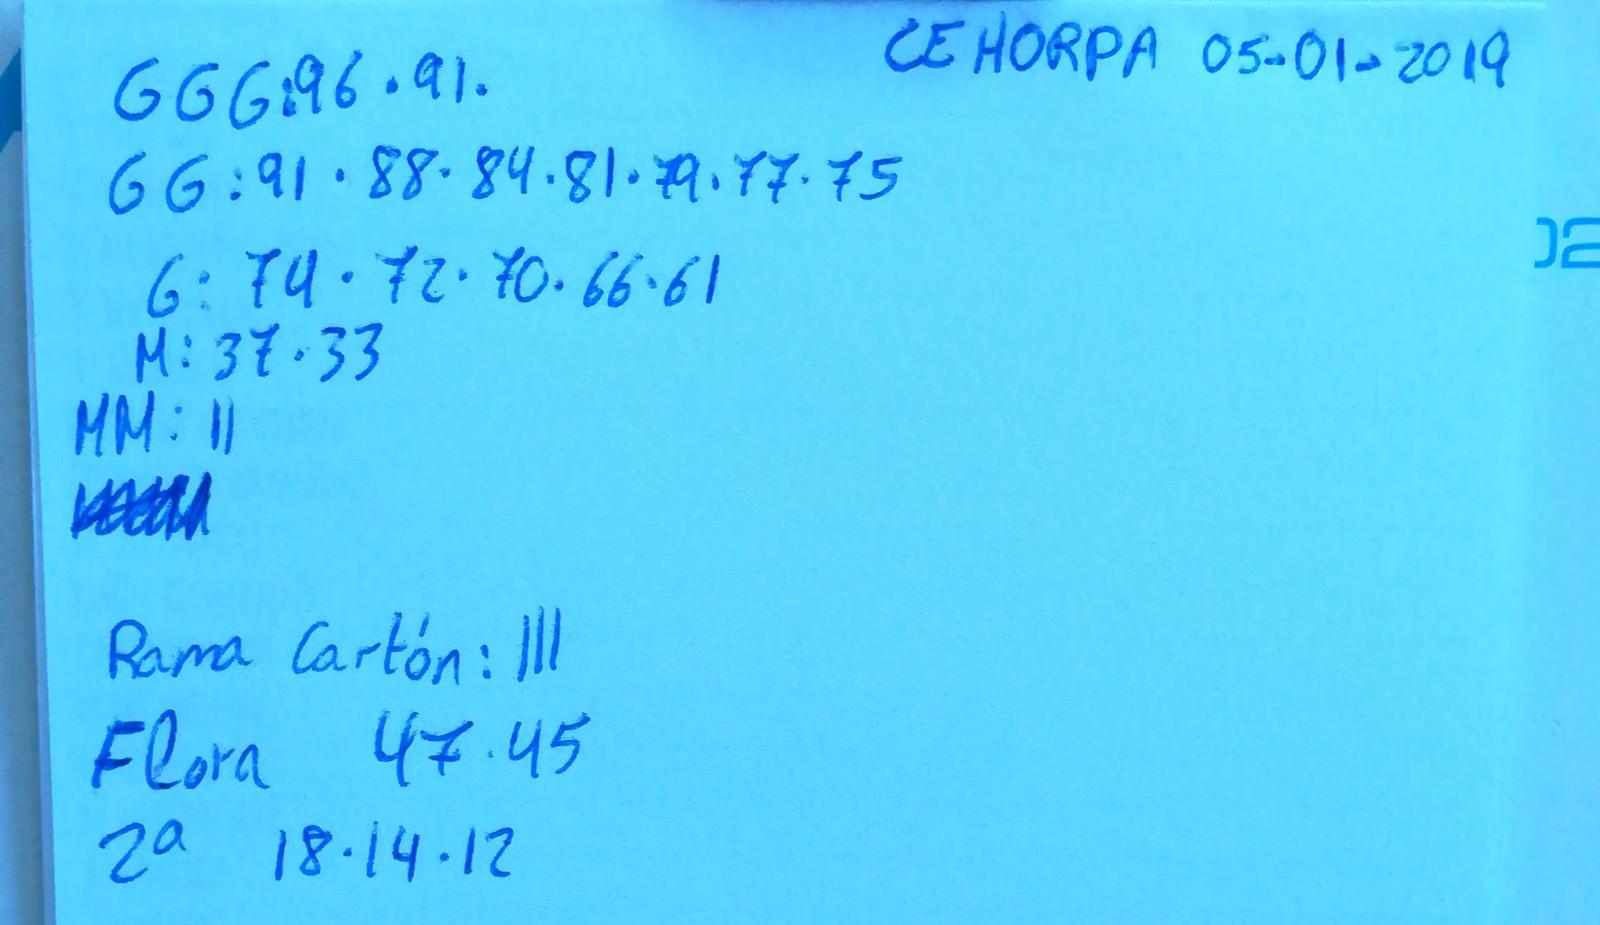 CEHORPA 05-01-2019
GGG:96.91.
GG:91.88.84.81.79.77.75
G: 74.72.70.66.61
M:37.33
MM: 11
Rama Cartón: III
Flora 47.45
2ª 18.14.12